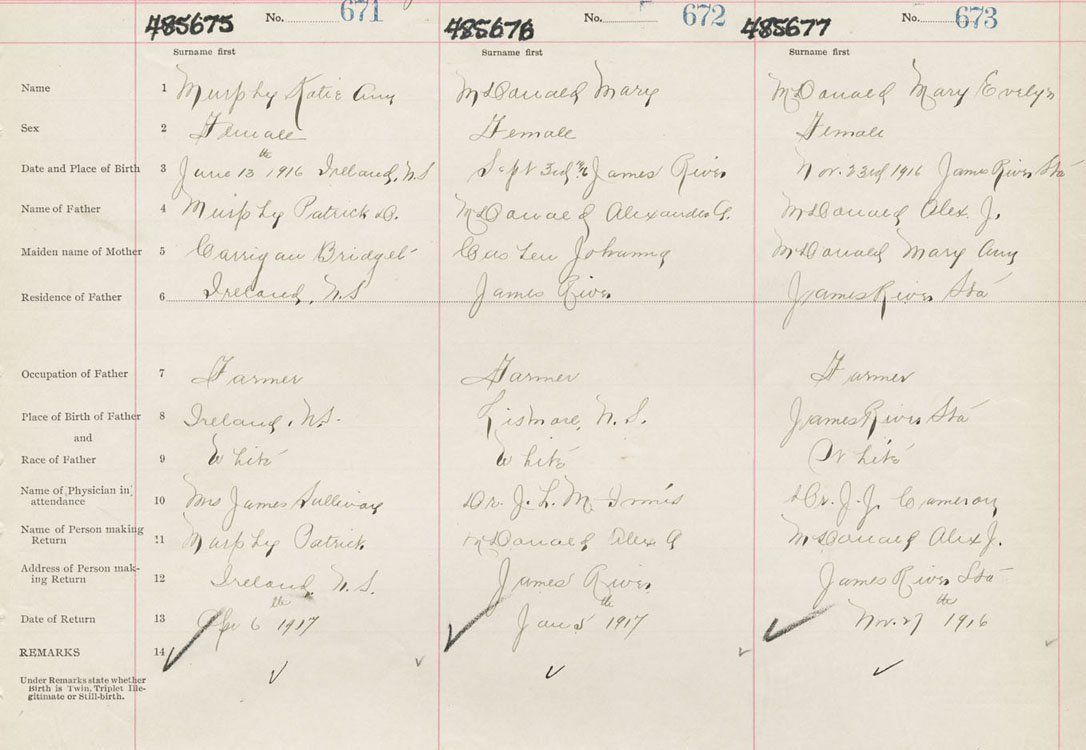 485675 No. 671 485676 No. 672 485677 No. 673
Surname first Surname first Surname first
Name 1 Murphy Katie Ann McDonald Mary McDonald Mary Evelyn
Sex 2 Female Female Female
Date and Place of Birth 3 June 13th 1916 Ireland, N.S Sept 3rd 1916 James River Nov. 23rd 1916 James River Sta
Name of Father 4 Murphy Patrick D. McDonald Alexander G. McDonald Alex. J.
Maiden name of Mother 5 Carrigan Bridget Johanna McDonald Mary Ann
Residence of Father 6 Ireland, N.S James River James River Sta
Occupation of Father 7 Farmer Farmer Farmer
Place of Birth of Father 8 Ireland, N.S. Lismore, N.S. James River Sta
and
Race of Father 9 White White White
Name of Physician in
attendance 10 Mrs James Sullivan Dr. J. L. McInnis Dr. J. J. Cameron
Name of Person making
Return 11 Murphy Patrick McDonald Alex G McDonald Alex J.
Address of Person mak-
ing Return 12 Ireland N.S. James River James River Sta
Date of Return 13 Apr 6th 1917 Jan 5th 1917 Nov. 27th 1916
REMARKS 14
Under Remarks state whether
Birth is Twin, Triplet Ille-
gitimate or Still-birth.